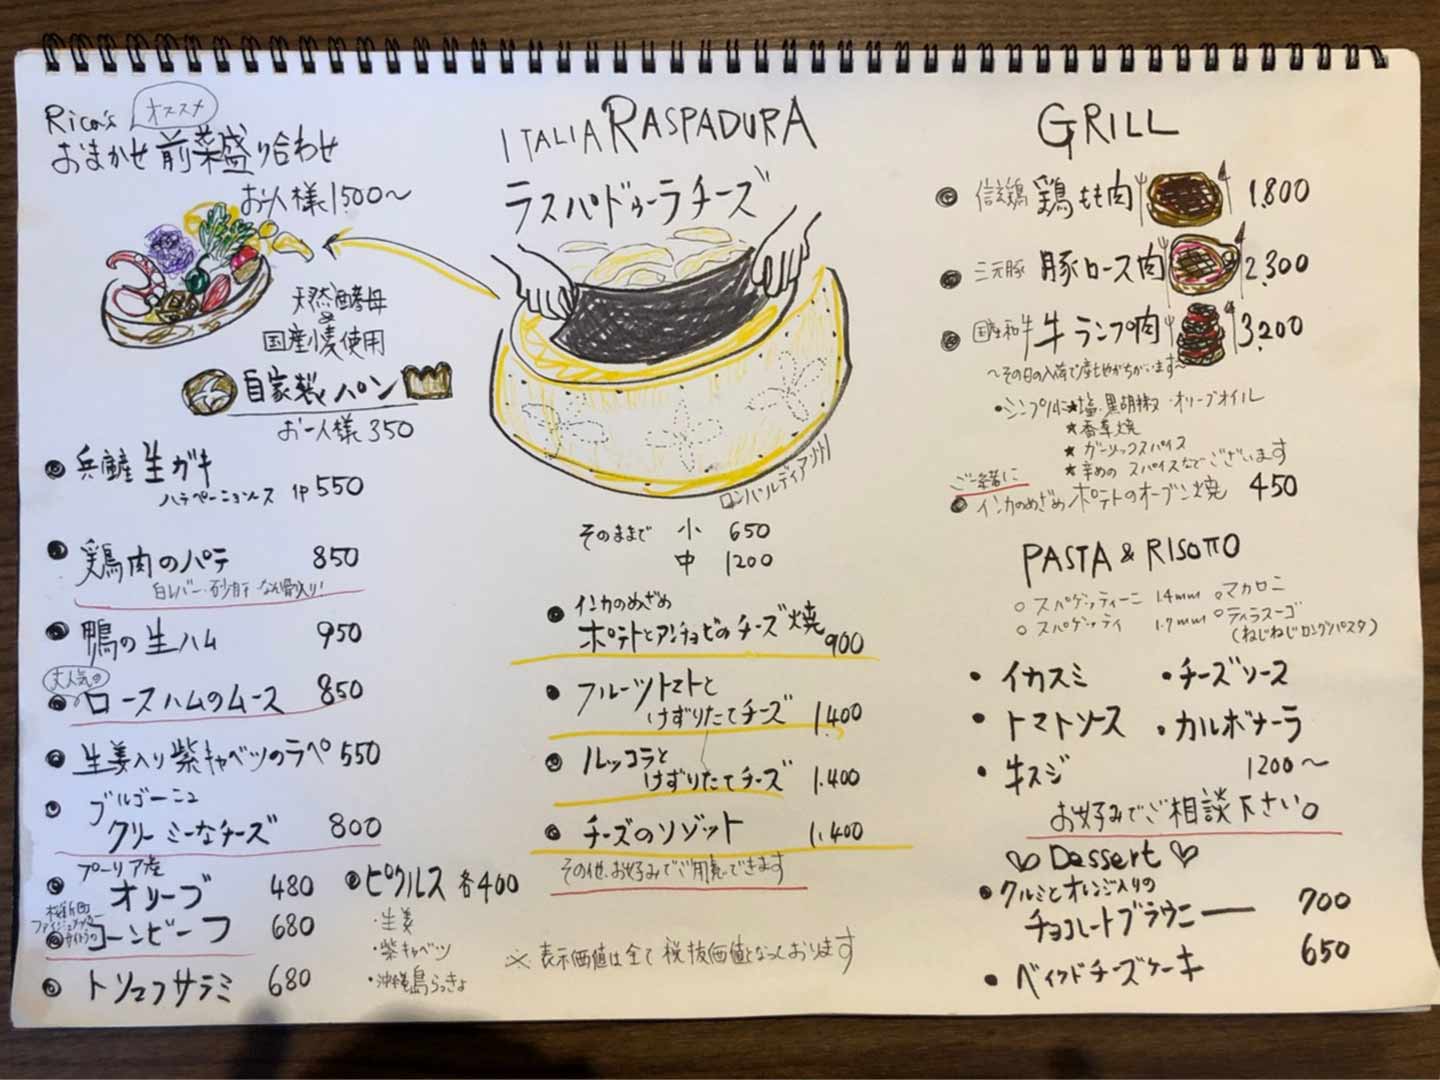 Rica's オススメ
おまかせ 前菜盛り合わせ
お一人様 1500〜
天然酵母
&
国産小麦使用
自家製パン
お一人様 350
兵庫産 生ガキ
ハラペーニョソース 1P 550
鶏肉のパテ 850
白レバー・砂肝・なん骨入り!
鴨の生ハム 950
大人気の
ロースハムのムース 850
生姜入り紫キャベツのラペ 550
ブルゴーニュ
クリーミーなチーズ 800
プーリア産
オリーブ 480
コーンビーフ 680
トリュフサラミ 680
ピクルス 各400
・生姜
・紫キャベツ
・沖縄島らっきょ
ITALIA RASPADURA
ラスパドゥーラチーズ
そのままで 小 650
中 1200
インカのめざめ
ポテトとアンチョビのチーズ焼 900
フルーツトマトと
けずりたてチーズ 1.400
ルッコラと
けずりたてチーズ 1.400
チーズのリゾット 1.400
その他、お好みでご用意できます
※ 表示価値は全て 税抜価値となっております
GRILL
信玄鶏 鶏もも肉 1.800
三元豚 豚ロース肉 2.300
国産和牛 牛ランプ肉 3.200
〜その日の入荷で産地がちがいます〜
・シンプルに ★塩・黒胡椒・オリーブオイル
★香草焼
★ガーリックスパイス
★辛めの スパイスなどございます
ご一緒に
インカのめざめポテトのオーブン焼 450
PASTA & RISOTTO
○ スパゲッティーニ 1.4mm ○マカロニ
○ スパゲッティ 1.7mm ○ティラスーゴ
(ねじねじロングパスタ)
・イカスミ ・チーズソース
・トマトソース ・カルボナーラ
・牛スジ 1200〜
お好みでご相談下さい。
♡ Dessert ♡
クルミとオレンジ入りの
チョコレートブラウニー 700
ベイクドチーズケーキ 650